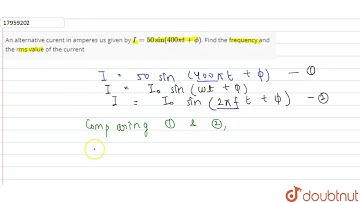 17959202
An alternative curent in amperes us given by I = 50 sin(400πt + ϕ). Find the frequency and
the rms value of the current
I = 50 sin (400πt + ϕ) — ①
I = I₀ sin (ωt + ϕ)
I = I₀ sin (2πf t + ϕ) — ②
Comparing ① & ②,
doubtnut